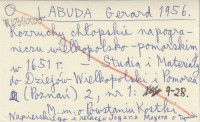 LABUDA Gerard 1956.
Rozruchy chłopskie na pogra-
niczu wielkopolsko-pomorskim
w 1651 r. – Studia i Materiały
do Dziejów Wielkopolski i Pomorza
(Poznań) 2, nr 1: 9-28.
M. in. o Powstaniu Kostki
Napierskiego i relacja Joana Mayera o